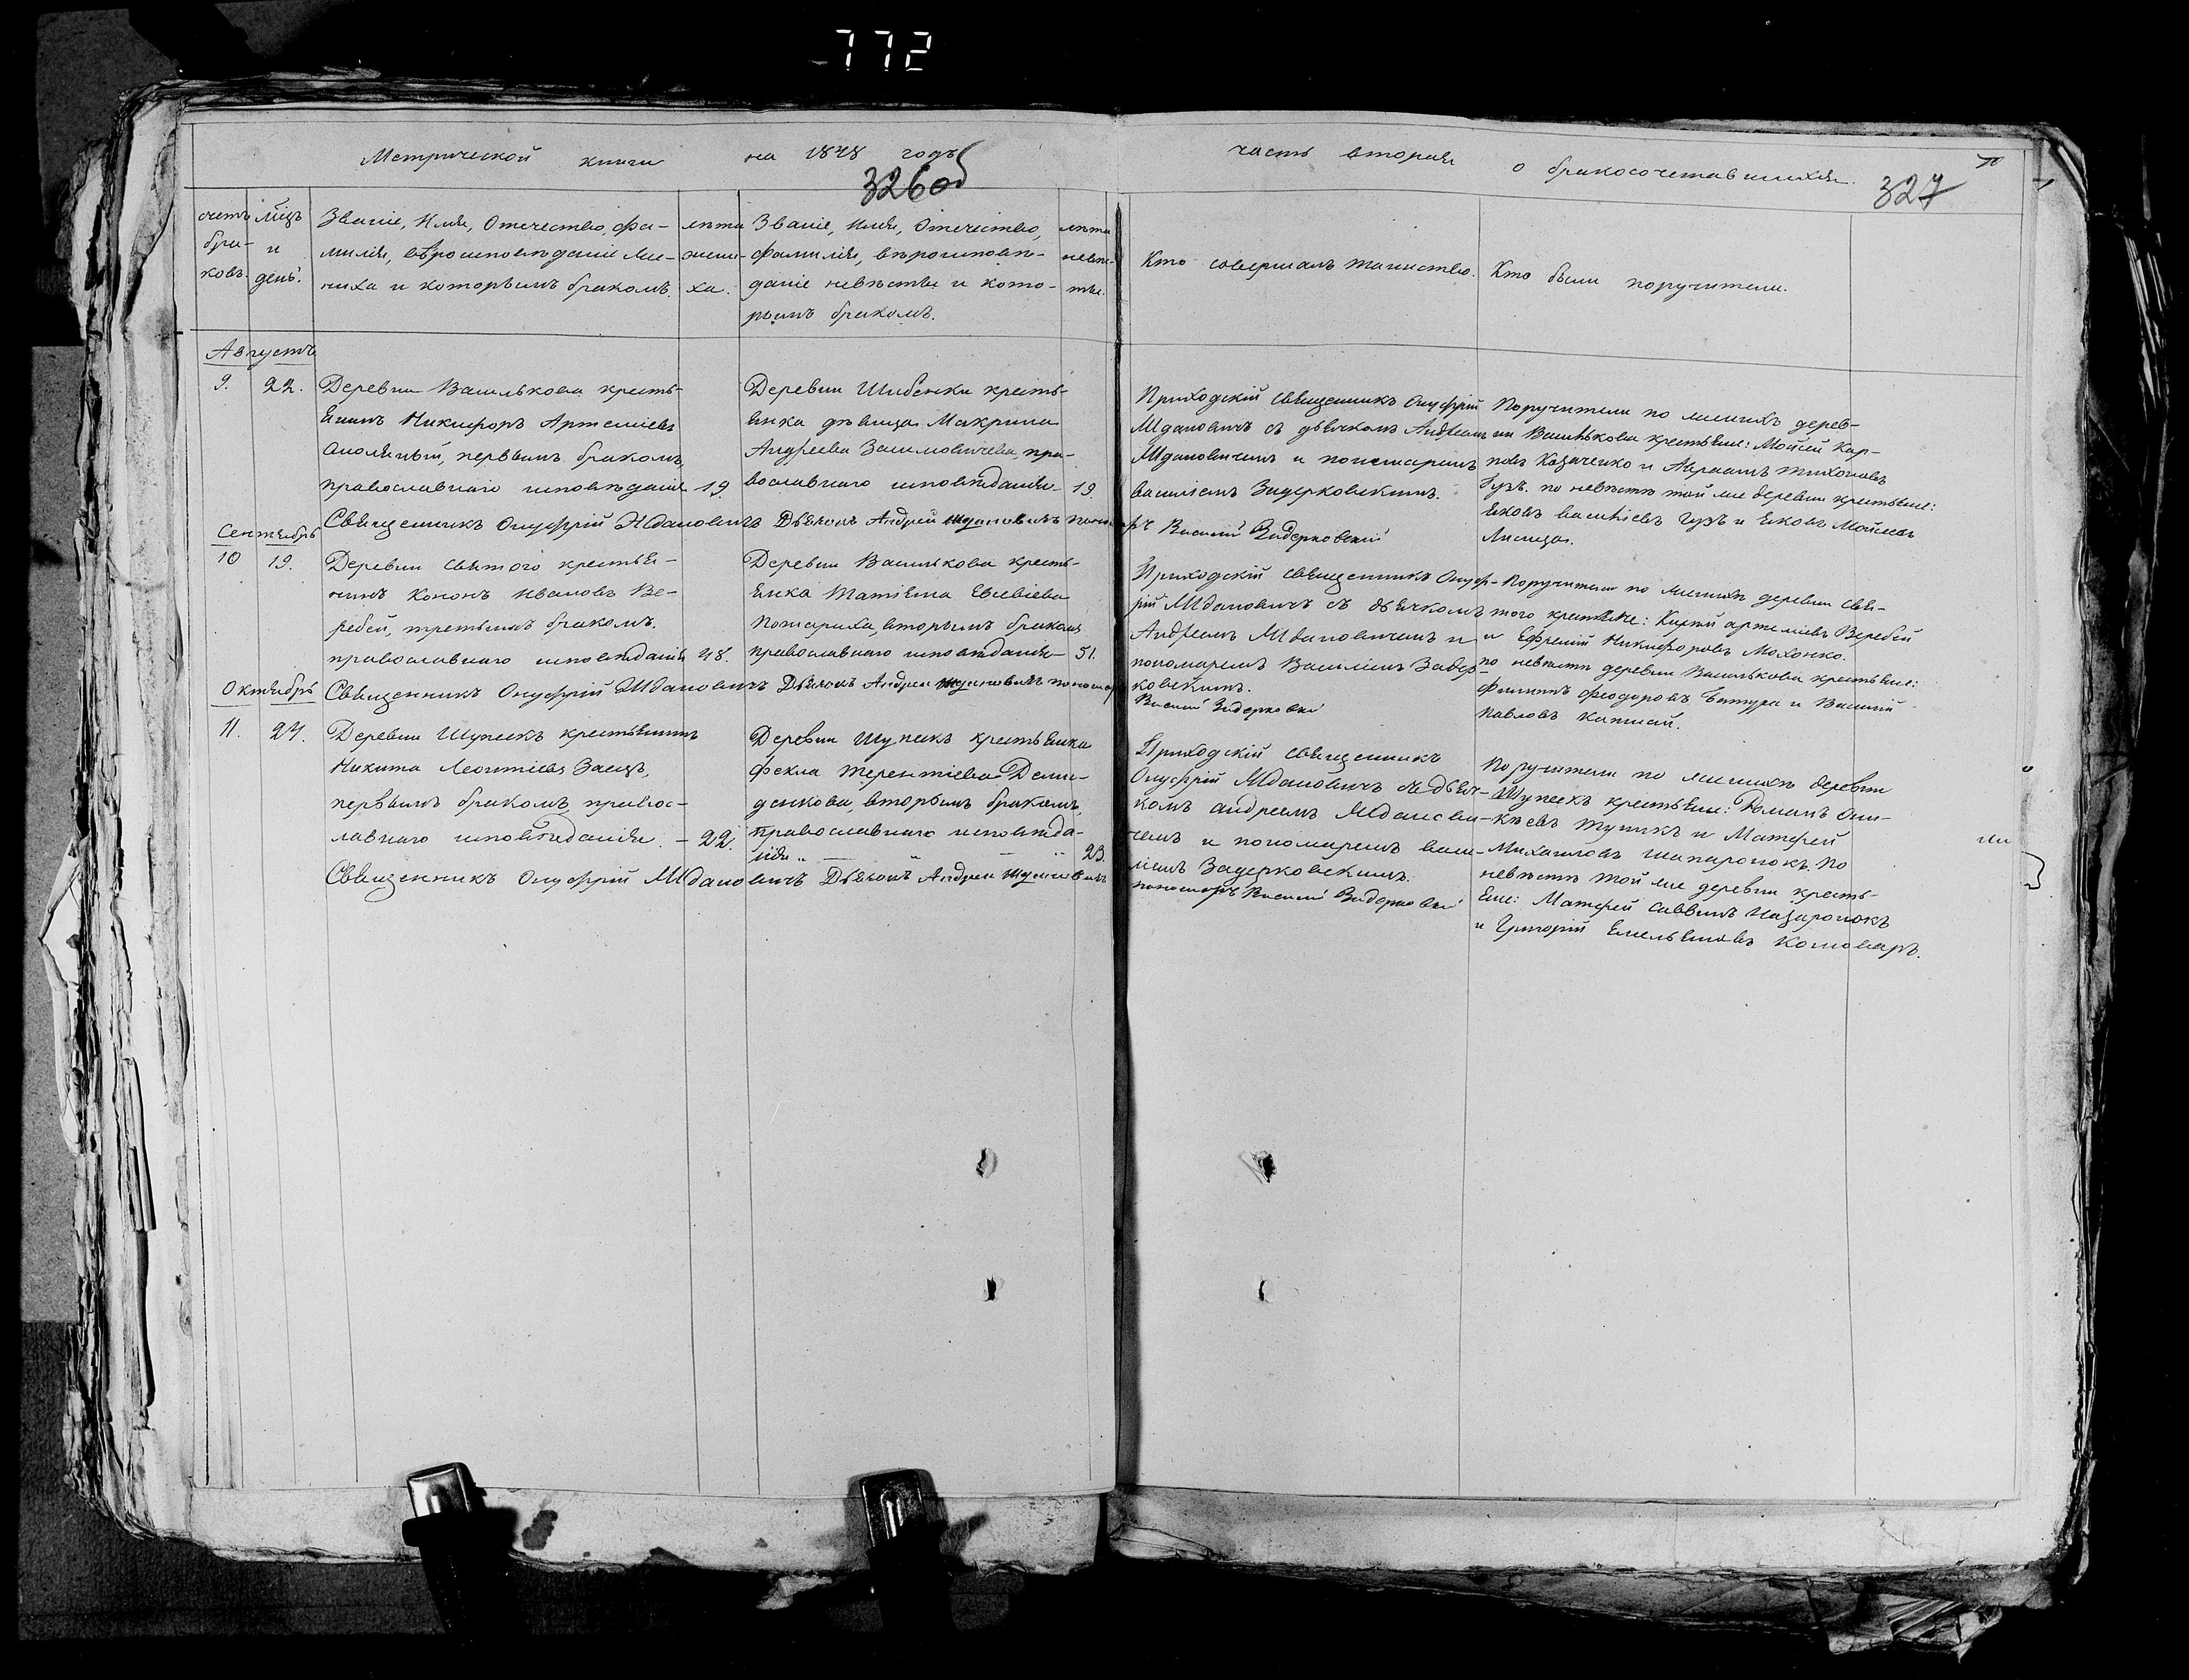 772
Метрической книги на 1878 годъ
326об
часть вторая о бракосочетавшихся.
327
счетъ бра-ковъ.
мѣсяцъ и день.
Званіе, Имя, Отечество, фа-
милія, вѣроисповѣданіе же-
ниха и которымъ бракомъ.
лѣта
жени-
ха.
Званіе, Имя, Отечество,
фамилія, вѣроисповѣ-
даніе невѣсты и кото-
рымъ бракомъ.
лѣта
невѣс-
ты.
Кто совершалъ таинство.
Кто были поручители.
Августъ
9. 22.
Деревни Василькова кресть-
янинъ Никифоръ Артеміевъ
первымъ бракомъ,
православнаго исповѣданія 19.
Деревни Шибенки кресть-
янка дѣвица Макрина
Андреева пра-
вославнаго исповѣданія 19.
Приходскій священникъ Онуфрій
Ждановичъ съ дьячкомъ Андреемъ
Ждановичемъ и пономаремъ
Василіемъ Задерковскимъ.
Поручители по женихѣ дерев-
ни Василькова крестьяне: Мойсей Кар-
повъ Козаченко и Авраамъ Тихоновъ
Гузъ. по невѣстѣ той же деревни крестьяне:
Яковъ Васильевъ Гузъ и Яковъ Мойсеевъ
Лисица.
Священникъ Онуфрій Ждановичъ Дьячокъ Андрей Ждановичъ Понома-
рь Василій Задерковскій
Сентябрь
10 19.
Деревни Святого крестья-
нинъ Кононъ Ивановъ Ве-
ребей, третьимъ бракомъ.
православнаго исповѣданія 48.
Деревни Василькова кресть-
янка Татіяна Евсевіева
вторымъ бракомъ
православнаго исповѣданія 51.
Приходскій священникъ Онуф-
рій Ждановичъ съ дьячкомъ
Андреемъ Ждановичемъ и
пономаремъ Василіемъ Задер-
ковскимъ.
Поручители по женихѣ деревни Свя-
того крестьяне: Артеміевъ Веребей
и Ефремій Никифоровъ Мохонко.
по невѣстѣ деревни Василькова крестьяне:
Филиппъ Феодоровъ и Василій
Павловъ
Священникъ Онуфрій Ждановичъ Дьячокъ Андрей Ждановичъ пономарь
Василій Задерковскій
Октябрь
11. 24.
Деревни Шупеекъ крестьянинъ
Никита Леонтіевъ Заецъ,
первымъ бракомъ, правос-
лавнаго исповѣданія. - 22.
Деревни Шупеекъ крестьянка
Фекла Терентіева Деми-
денкова, вторымъ бракомъ,
православнаго исповѣда-
нія 23.
Приходскій священникъ
Онуфрій Ждановичъ съ дьяч-
комъ Андреемъ Жданові-
чемъ и пономаремъ Васи-
ліемъ Задерковскимъ.
Поручители по женихѣ деревни
Шупеекъ крестьяне: Романъ
и Матфей
Михаиловъ Шапаронокъ. По
невѣстѣ той же деревни кресть-
яне: Матфей Саввинъ Назаронокъ
и Григорій Емельяновъ Коноваръ.
Священникъ Онуфрій Ждановичъ Дьячокъ Андрей Ждановичъ
пономарь Василій Задерковскій